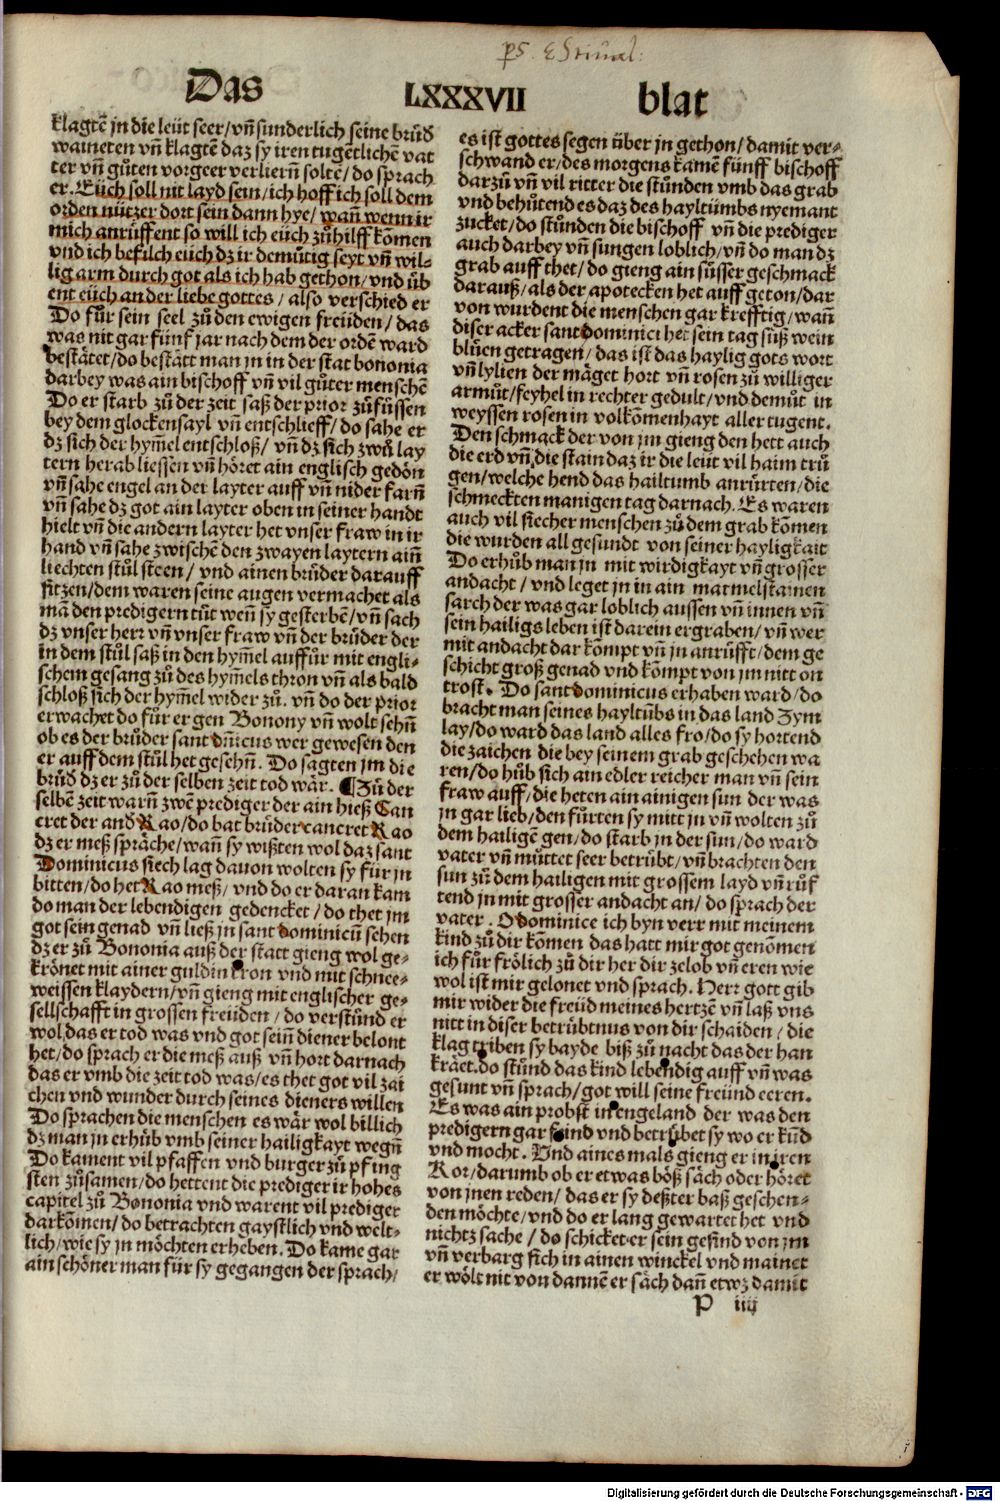 Das LXXXVII blat
klagtē jn die leüt seer/vñ sunderlich seine brůd
waineten vñ klagtē daz sy iren tugētlichē vat
ter vñ gůten vorgeer verliern soltē/do sprach
er. Eüch soll nit layd sein/ich hoff ich soll dem
orden nützer dort sein dann hye/wañ wenn ir
mich anrüffent so will ich eüch zůhilff kōmen
vnd ich befilch eüch dz ir demütig seyt vñ wil⸗
lig arm durch got als ich hab gethon/vnd üb
ent eüch an der liebe gottes/also verschied er
Do fůr sein seel zů den ewigen freüden/das
was nit gar fünf jar nach dem der ordē ward
bestätet/do bestätt man jn in der stat bononia
darbey was ain bischoff vñ vil gůter menschē
Do er starb zů der zeit saß der prior zůfüssen
bey dem glockensayl vñ entschlieff/do sahe er
dz sich der hym̄el entschloß/vñ dz sich zwů lay
tern herab liessen vñ höret ain englisch gedön
vñ sahe engel an der layter auff vñ nider farñ
vñ sahe dz got ain layter oben in seiner handt
hielt vñ die andern layter het vnser fraw in ir
hand vñ sahe zwischē den zwayen laytern aiñ
liechten stůl steen/vnd ainen brůder darauff
sitzen/dem waren seine augen vermachet als
mā den predigern tůt weñ sy gesterbē/vñ sach
dz vnser herr vñ vnser fraw vñ der brůder der
in dem stůl saß in den hym̄el auffůr mit engli⸗
schem gesang zů des hym̄els thron vñ als bald
schloß sich der hym̄el wider zů. vñ do der prior
erwachet do fůr er gen Bonony vñ wolt sehñ
ob es der brůder sant dñicus wer gewesen den
er auff dem stůl het gesehñ. Do sagten jm die
brůd dz er zů der selben zeit tod wär. ¶Zů der
selbē zeit warñ zwē prediger der ain hieß Can
cret der and Rao/do bat brůder cancret Rao
dz er meß spräche/wañ sy wißten wol daz sant
Dominicus siech lag dauon wolten sy für in
bitten/do het Rao meß/vnd do er daran kam
do man der lebendigen gedencket/do thet jm
got sein genad vñ ließ jn sant dominicū sehen
dz er zů Bononia auß der statt gieng wol ge⸗
krönet mit ainer guldin kron vnd mit schnee⸗
weissen klaydern/vñ gieng mit englischer ge⸗
sellschafft in grossen freüden/do verstůnd er
wol das er tod was vnd got seiñ diener belont
het/do sprach er die meß auß vñ hort darnach
das er vmb die zeit tod was/es thet got vil zai
chen vnd wunder durch seines dieners willen
Do sprachen die menschen es wär wol billich
dz man jn erhüb vmb seiner hailigkayt wegñ
Do kament vil pfaffen vnd burger zů pfing
sten zůsamen/do hettent die prediger ir hohes
capitel zů Bononia vnd warent vil prediger
darkōmen/do betrachten gaystlich vnd welt⸗
lich/wie sy jn möchten erheben. Do kame gar
ain schöner man für sy gegangen der sprach/
es ist gottes segen über jn gethon/damit ver⸗
schwand er/des morgens kamē fünff bischoff
darzů vñ vil ritter die stůnden vmb das grab
vnd behütend es daz des hayltůmbs nyemant
zucket/do stůnden die bischoff vñ die prediger
auch darbey vñ sungen loblich/vñ do man dz
grab auff thet/do gieng ain süsser geschmack
darauß/als der apotecken het auff geton/dar
von wurdent die menschen gar krefftig/wañ
diser acker sant dominici het sein tag süß wein
blüen getragen/das ist das haylig gots wort
vñ lylien der mäget hort vñ rosen zů williger
armůt/feyhel in rechter gedult/vnd demůt in
weyssen rosen in volkōmenhayt aller tugent.
Den schmack der von jm gieng den hett auch
die erd vñ die stain daz ir die leüt vil haim trů
gen/welche hend das hailtumb anrürten/die
schmeckten manigen tag darnach. Es waren
auch vil siecher menschen zů dem grab kōmen
die wurden all gesundt von seiner hayligkait
Do erhůb man jn mit wirdigkayt vñ grosser
andacht/vnd leget jn in ain marmelstainen
sarch der was gar loblich aussen vñ innen vñ
sein hailigs leben ist darein ergraben/vñ wer
mit andacht dar kōmpt vñ jn anrüfft/dem ge
schicht groß genad vnd kōmpt von jm nitt on
trost. Do sant dominicus erhaben ward/do
bracht man seines hayltūbs in das land Zym
lay/do ward das land alles fro/do sy hortend
die zaichen die bey seinem grab geschehen wa
ren/do hůb sich ain edler reicher man vñ sein
fraw auff/die heten ain ainigen sun der was
jn gar lieb/den fůrten sy mitt jn vñ wolten zů
dem hailigē gen/do starb jn der sun/do ward
vater vñ můtter seer betrübt/vñ brachten den
sun zů dem hailigen mit grossem layd vñ růf
tend jn mit grosser andacht an/do sprach der
vater. O dominice ich byn verr mit meinem
kind zů dir kōmen das hatt mir got genōmen
ich fůr frölich zů dir her dir zelob vñ eren wie
wol ist mir gelonet vnd sprach. Herr gott gib
mir wider die freüd meines hertzē vñ laß vns
nitt in diser betrübtnus von dir schaiden/die
klag triben sy bayde biß zů nacht das der han
kräet.do stůnd das kind lebendig auff vñ was
gesunt vñ sprach/got will seine freünd eeren.
Es was ain probst in engeland der was den
predigern gar feind vnd betrübet sy wo er kūd
vnd mocht. Und aines mals gieng er in iren
Kor/darumb ob er etwas böß säch oder höret
von jnen reden/das er sy deßter baß geschen⸗
den möchte/vnd do er lang gewartet het vnd
nichtz sache/do schicket er sein gesind von jm
vñ verbarg sich in ainen winckel vnd mainet
er wölt nit von dannē er säch dañ etwz damit
P iiij
Digitalisierung gefördert durch die Deutsche Forschungsgemeinschaft - DFG